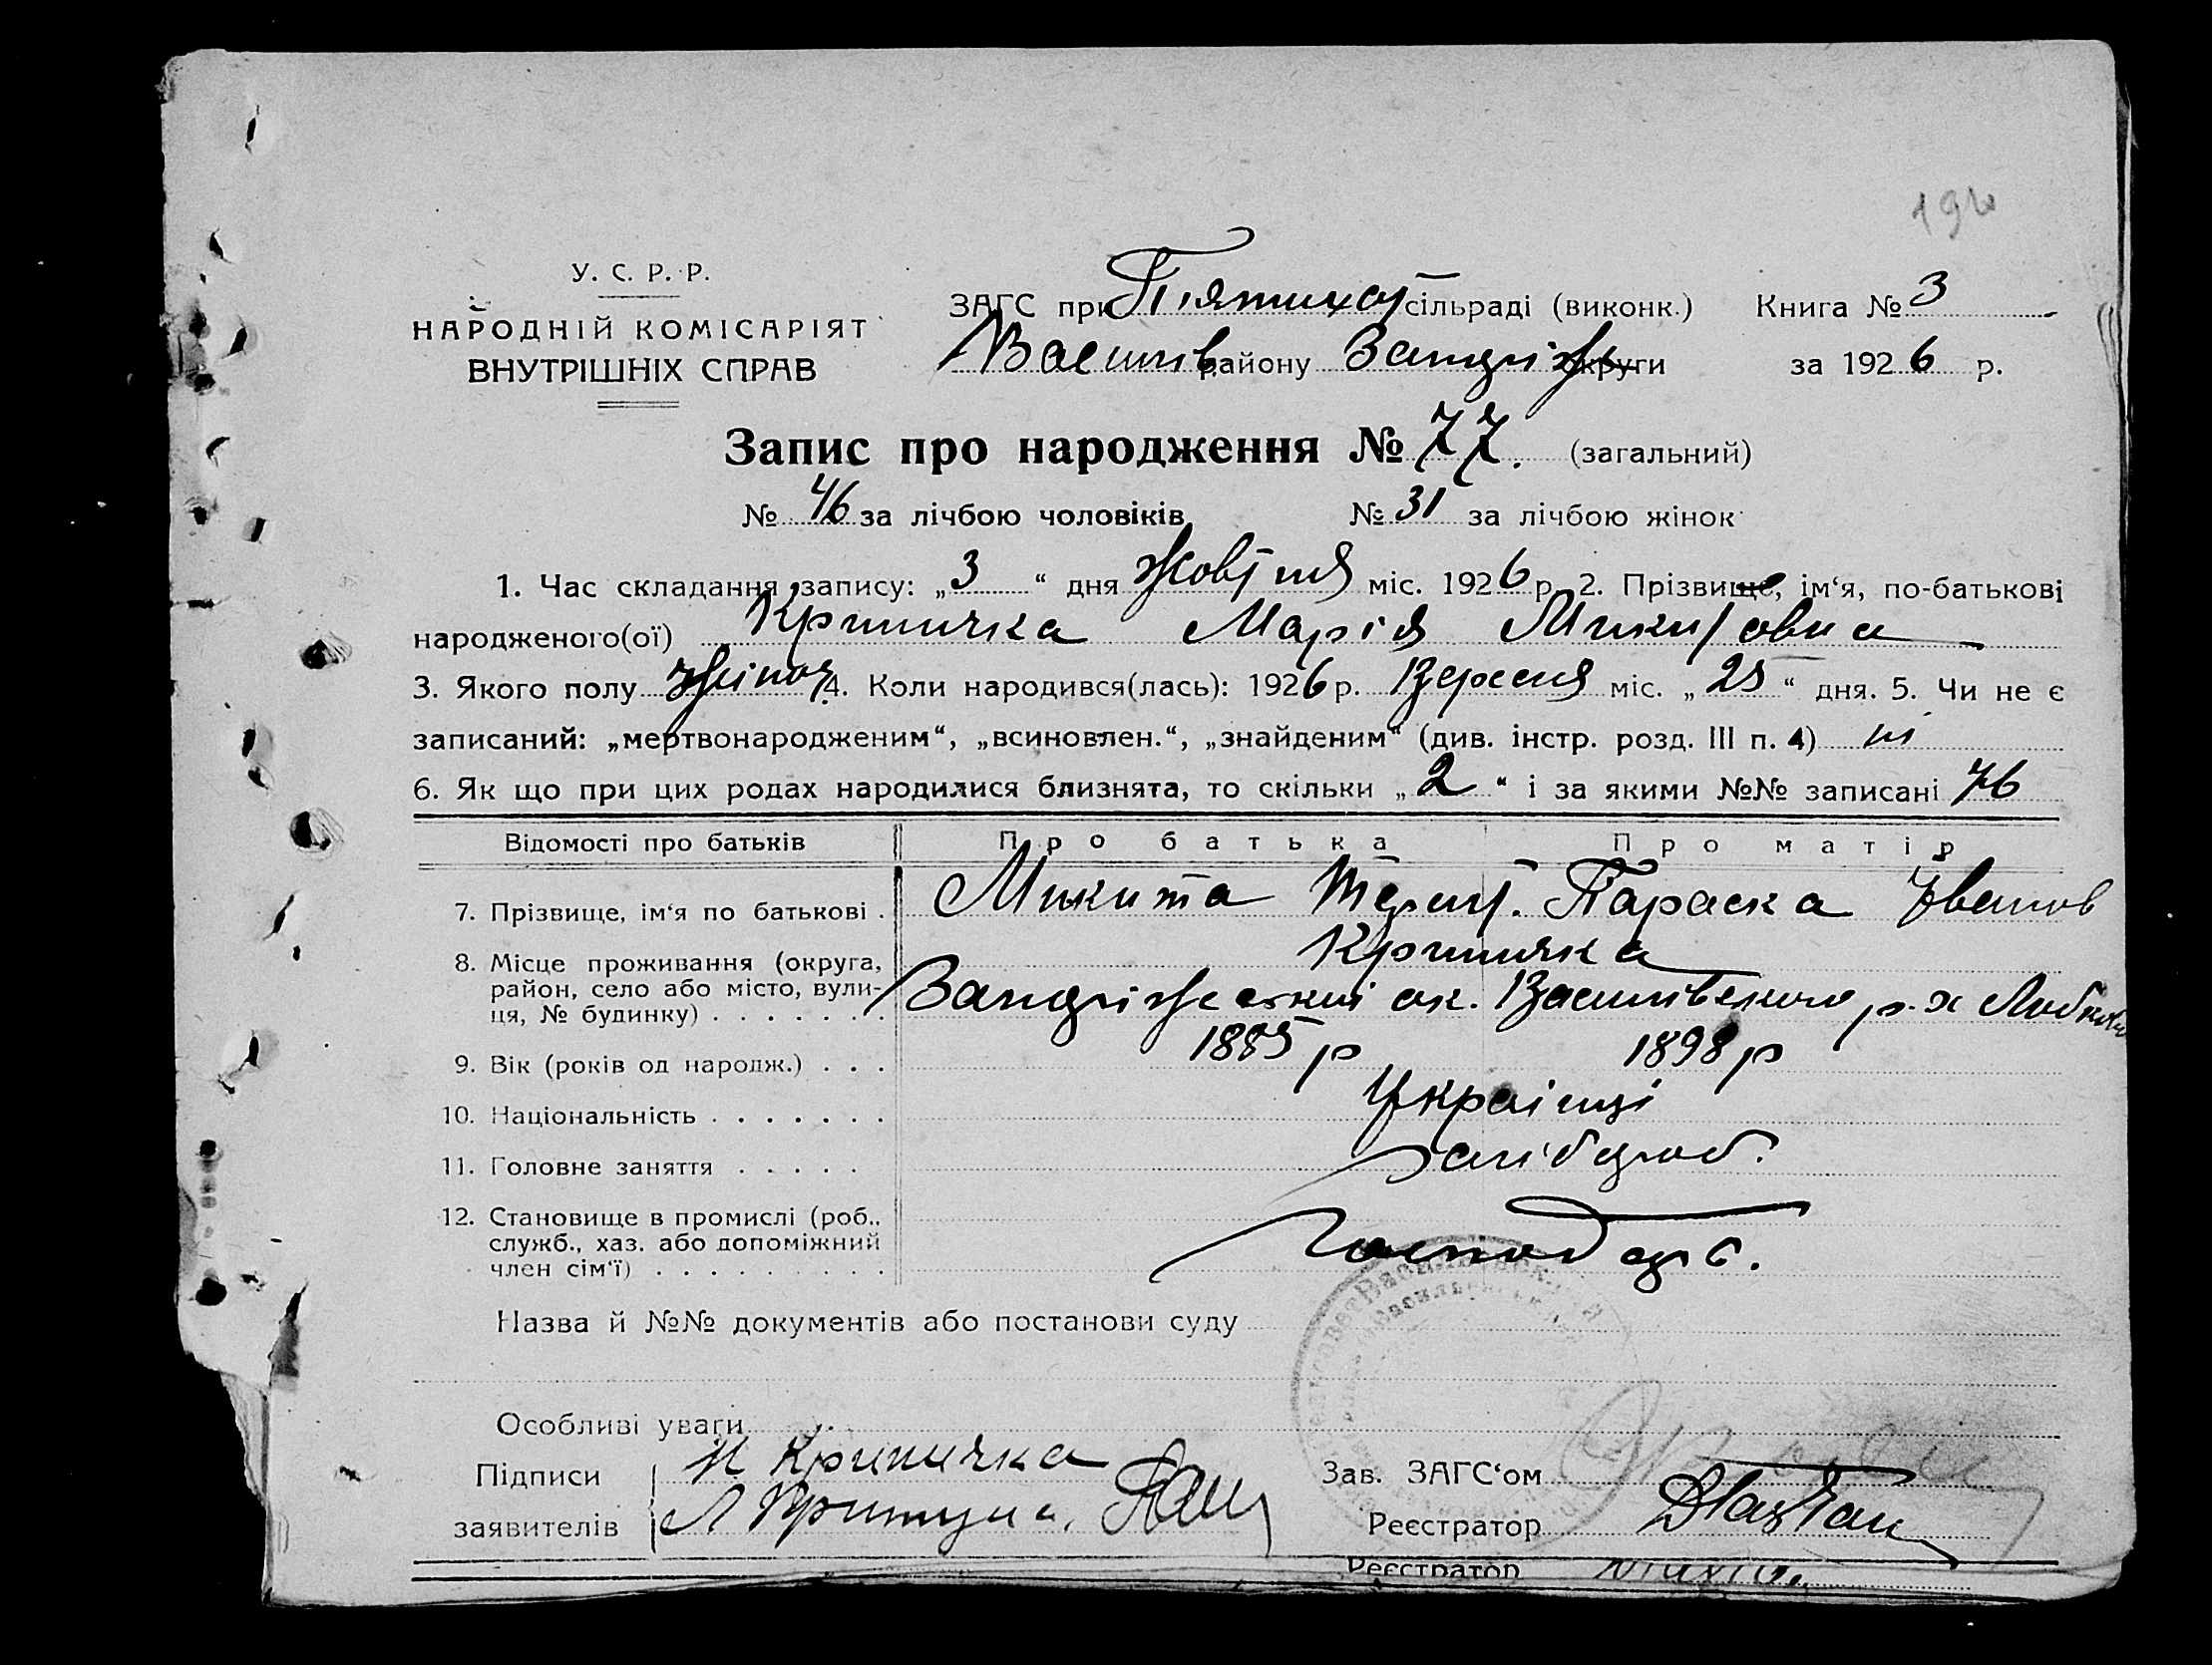 У. С. Р. Р.
НАРОДНІЙ КОМІСАРІЯТ
ВНУТРІШНІХ СПРАВ
ЗАГС при П'ятихат сільраді (виконк.) Книга № 3
Василів району Запоріж округи за 1926 р.
Запис про народження № 77. (загальний)
№ 46 за лічбою чоловіків № 31 за лічбою жінок
1. Час складання запису: „3“ дня Жовтня міс. 1926 р. 2. Прізвище, ім‘я, по-батькові
народженого(ої) Криничка Марія Микитовна
3. Якого полу жіноч. 4. Коли народився(лась): 1926 р. Вересня міс. „25“ дня. 5. Чи не є
записаний: „мертвонародженим“, „всиновлен.“, „знайденим“ (див. інстр. розд. III п. 4) ні
6. Як що при цих родах народилися близнята, то скільки „2“ і за якими №№ записані 76
Відомості про батьків Про батька Про матір
7. Прізвище, ім‘я по батькові . Микита Параска Іванов
Криничка
8. Місце проживання (округа,
район, село або місто, вули-
ця, № будинку) . . . . . . . Запоріжський ок. Василівського р. х
9. Вік (років од народж.) . . . 1885 р 1898 р
10. Національність . . . . . . . Українці
11. Головне заняття . . . . . хлібороб.
12. Становище в промислі (роб.,
служб., хаз. або допоміжний
член сім‘ї) . . . . . . . . . Господар с.
Назва й №№ документів або постанови суду
Особливі уваги
Підписи Н Криничка Зав. ЗАГС‘ом
заявителів Реєстратор
Реєстратор